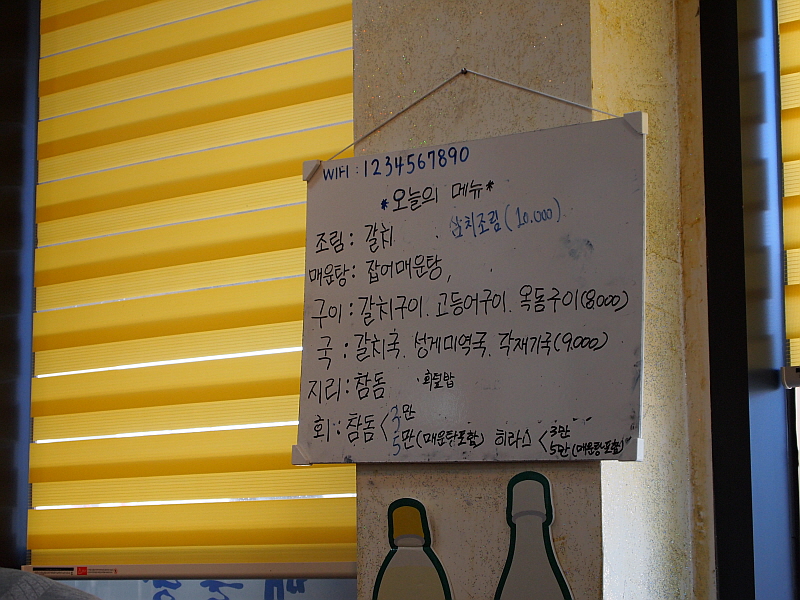 WIFI : 1234567890
*오늘의 메뉴*
조림 : 갈치 삼치조림(10.000)
매운탕 : 잡어매운탕,
구이 : 갈치구이. 고등어구이. 옥돔구이(8.000)
국 : 갈치국. 성게미역국. 각재기국(9.000)
지리 : 참돔 · 회덮밥
회 : 참돔 < 3만 5만(매운탕포함) 히라스 < 3만 5만(매운탕포함)